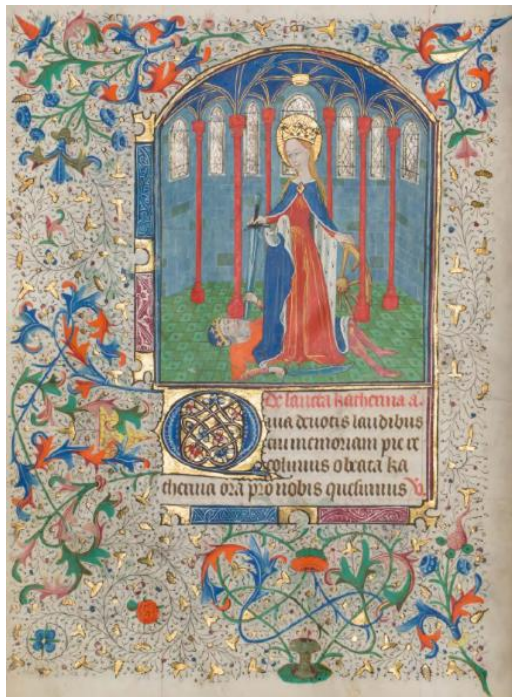 De sancta katherina a.
Quia deuotis laudibus
tuu memoriam pie re
colimus o beata ka
therina ora pro nobis quesumus V.